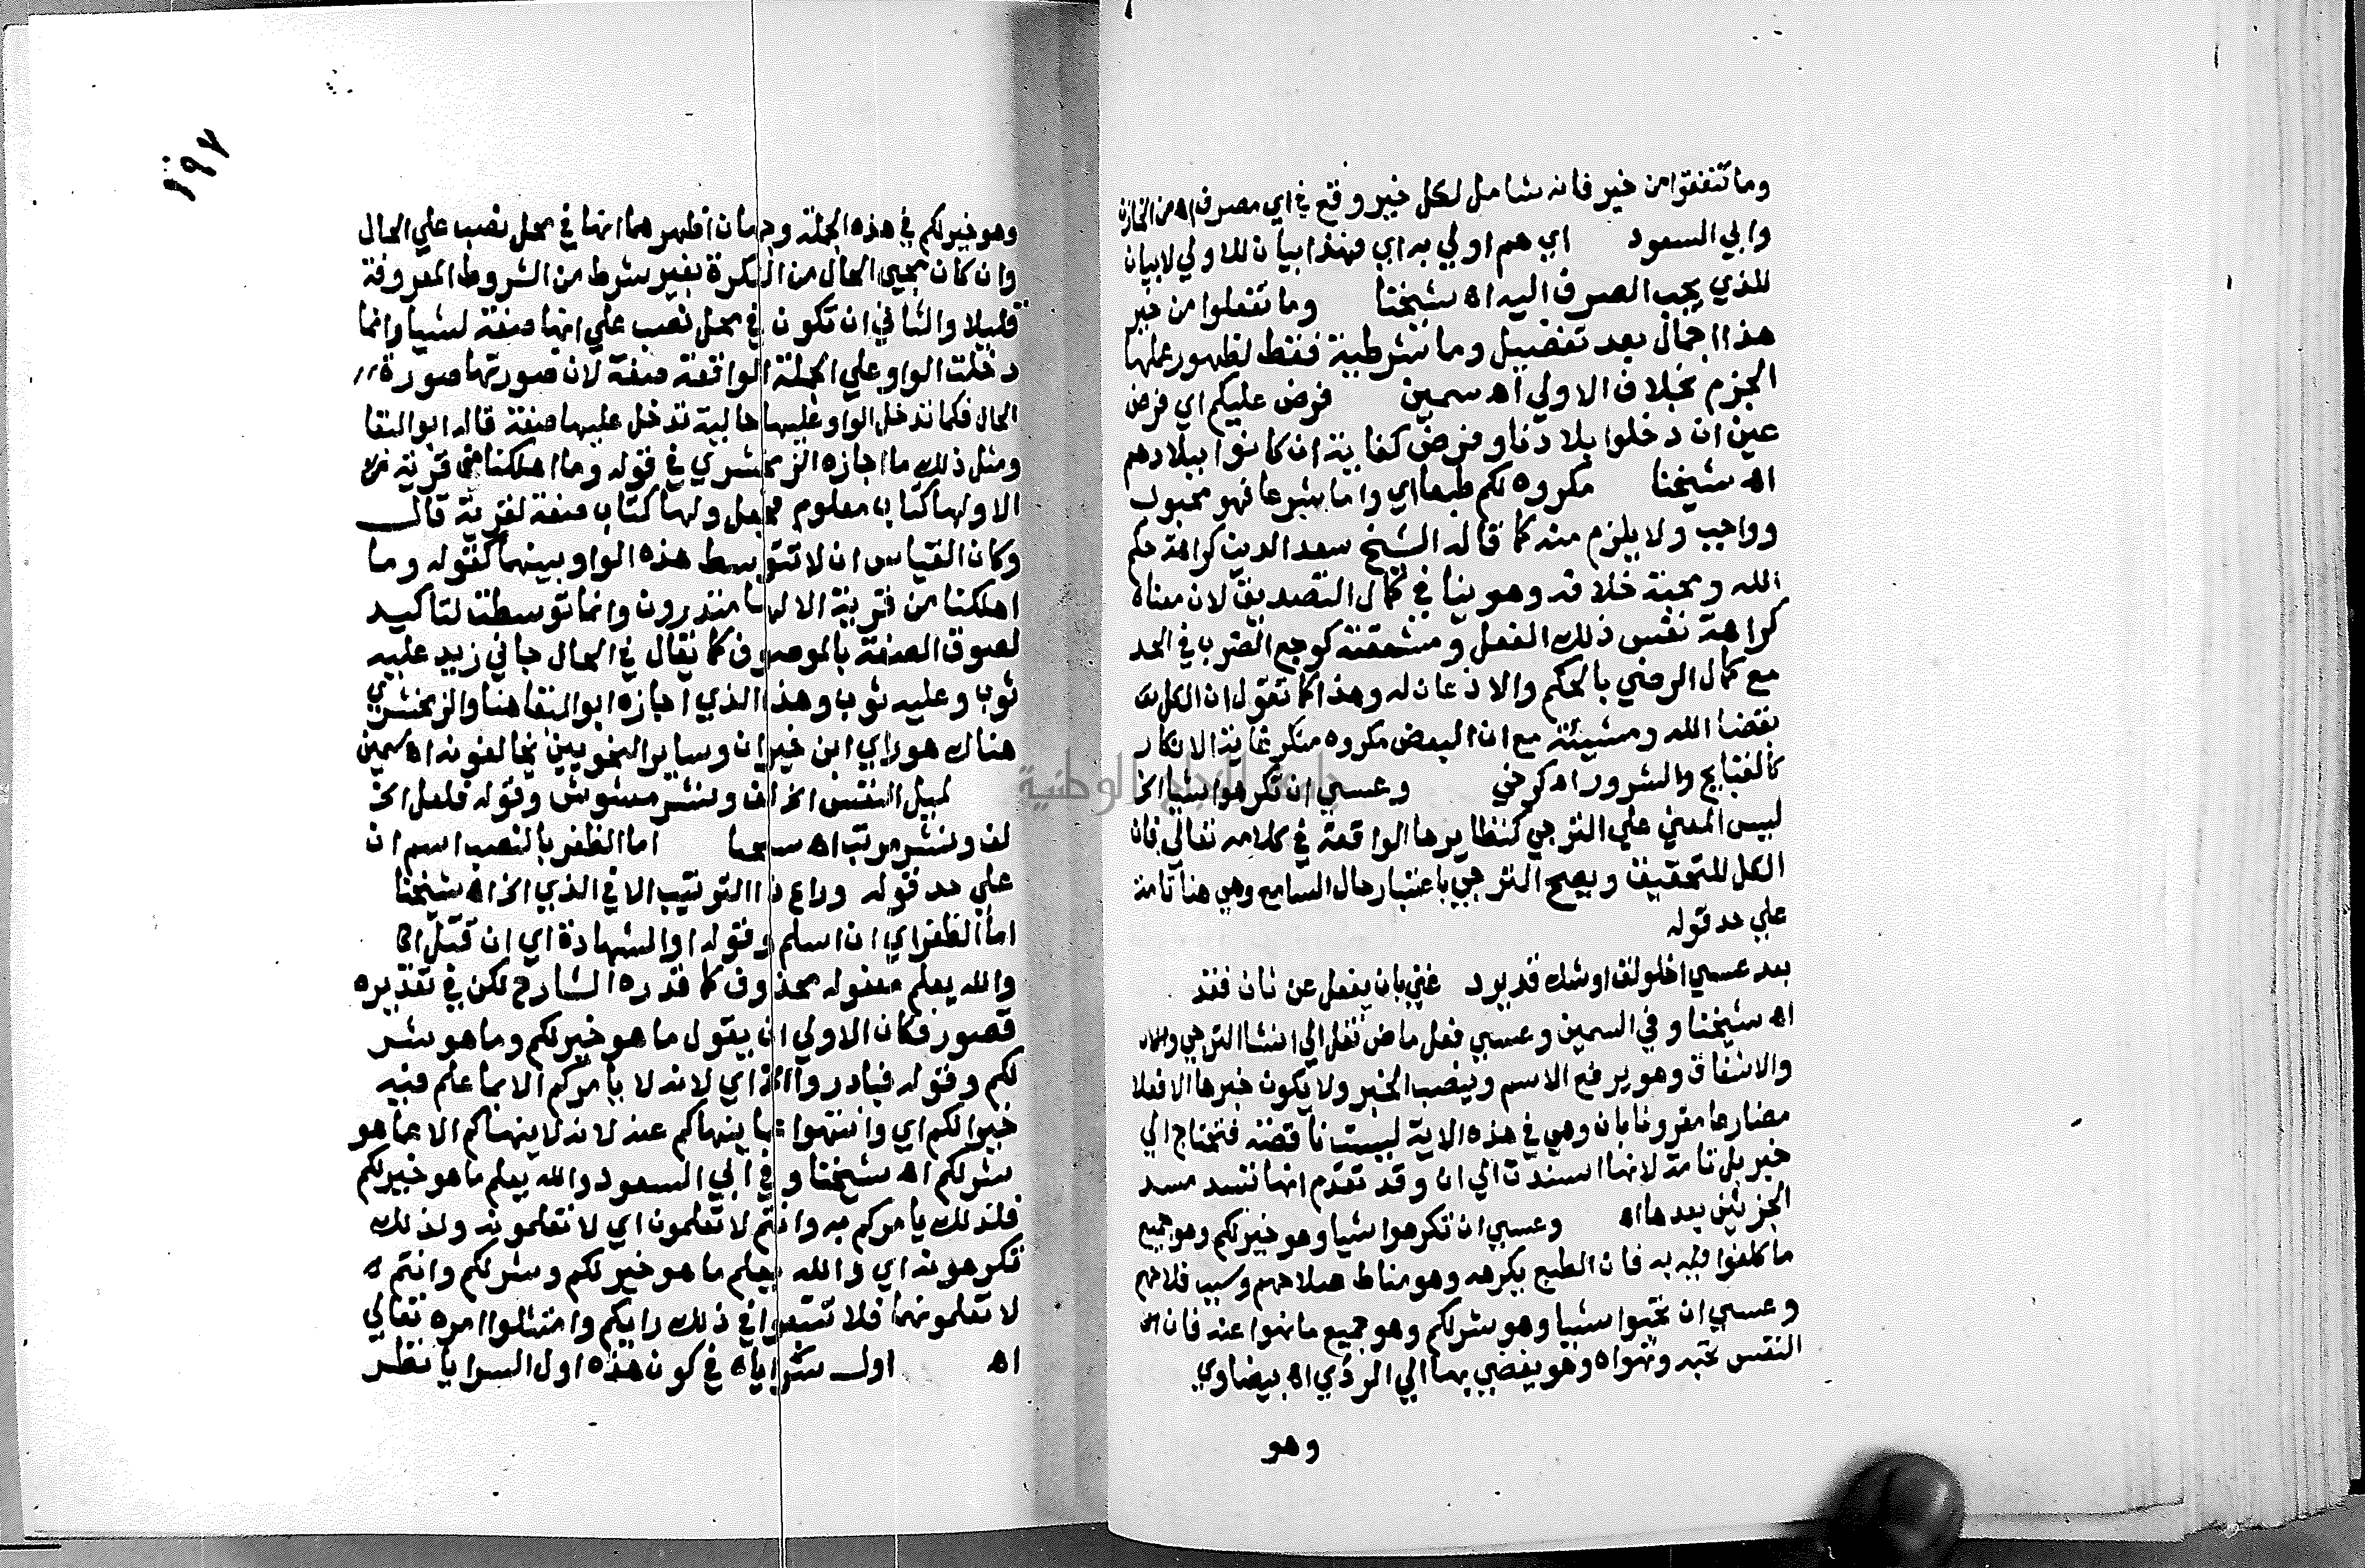 وما تنفقوا من خير فانه شامل لكل خير وقع في اي مصرف اه من الخازن
وابي السعود اي هم اولي به اي فهذا بيان للاولي لا بيان
للذي يجب الصرف اليه اه شيخنا وما تفعلوا من خير
هذا اجمال بعد تفصيل وما شرطية فقط لظهور عملها
الجزم بخلاف الاولي اه سمين فرض عليكم اي فرض
عين ان دخلوا بلادنا وفرض كفاية ان كانوا ببلادهم
اه شيخنا مكروه لكم طبعا اي واما شرعا فهو محبوب
وواجب ولا يلزم منه كما قاله الشيخ سعد الدين كراهة حكم
الله ومحبة خلافه وهو ينافي كمال التصديق لان معناه
كراهة نفس ذلك الفعل ومشقته كوجع الضرب في الحد
مع كمال الرضي بالحكم والاذعان له وهذا كما تقول ان الكل
بقضا الله ومشيئته مع ان البعض مكروه منكر غاية الانكار
كالقبايح والشرور اه كرخي وعسي ان تكرهوا شيا الخ
ليس المعني علي الترجي كنظايرها الواقعة في كلامه تعالي فان
الكل للتحقيق ويصح الترجي باعتبار حال السامع وهي هنا تامة
علي حد قوله
بعد عسي اخلولق اوشك قد يرد غني بان يفعل عن ثان فقد
اه شيخنا وفي السمين وعسي فعل ماض نقل الي انشا الترجي
والاشفاق وهو يرفع الاسم وينصب الخبر ولا يكون خبرها الا فعلا
مضارعا مقرونا بان وهي في هذه الاية ليست ناقصة فتحتاج الي
خبر بل تامة لانها اسندت الي ان وقد تقدم انها تسد مسد
الجزئين بعدها اه وعسي ان تكرهوا شيا وهو خير لكم وهو جميع
ما كلفوا به فان الطبع يكرهه وهو مناط صلاحهم وسبب فلاحهم
وعسي ان تحبوا شيا وهو شر لكم وهو جميع ما نهوا عنه فان
النفس تحبه وتهواه وهو يفضي بها الي الردي اه بيضاوي
وهو
١٩٧
وهو خير لكم في هذه الجملة وجهان اظهرهما انها في محل نصب علي الحال
وان كان مجيي الحال من النكرة بغير شرط من الشروط المعروفة
قليلا والثاني ان تكون في محل نصب علي انها صفة لشيا وانما
دخلت الواو علي الجملة الواقعة صفة لان صورتها صورة
الحال فكما تدخل الواو عليها حالية تدخل عليها صفة قاله ابو البقا
ومثل ذلك ما اجازه الزمخشري في قوله وما اهلكنا من قرية
الا ولها كتاب معلوم فجعل ولها كتاب صفة لقرية قال
وكان القياس ان لا تتوسط هذه الواو بينهما كقوله وما
اهلكنا من قرية الا لها منذرون وانما توسطت لتاكيد
لصوق الصفة بالموصوف كما يقال في الحال جاني زيد عليه
ثوب وعليه ثوب وهذا الذي اجازه ابو البقا هنا والزمخشري
هناك هو راي ابن خيران وساير النحويين يخالفونه اه سمين
لميل النفس الخ لف ونشر مشوش وقوله فلعل الخ
لف ونشر مرتب اه شيخنا اما الظفر بالنصب اسم ان
علي حد قوله وراع ذا الترتيب الا في الذي الخ اه شيخنا
اما الظفر اي ان اسلم وقوله او الشهادة اي ان قتل اه
والله يعلم مفعوله محذوف كما قدره الشارح لكن في تقديره
قصور فكان الاولي ان يقول ما هو خير لكم وما هو شر
لكم وقوله فبادروا الخ اي لانه لا يامركم الا بما علم فيه
خيرا لكم اي وانتهوا عما ينهاكم عنه لانه لا ينهاكم الا عما هو
شر لكم اه شيخنا وفي ابي السعود والله يعلم ما هو خير لكم
فلذلك يامركم به وانتم لا تعلمون اي لا تعلمونه ولذلك
تكرهونه اي والله يعلم ما هو خير لكم وشر لكم وانتم
لا تعلمونهما فلا تتبعوا في ذلك رايكم وامتثلوا امره تعالي
اه اول سراياه في كون هذه اول السرايا نظر
جامعة النجاح الوطنية